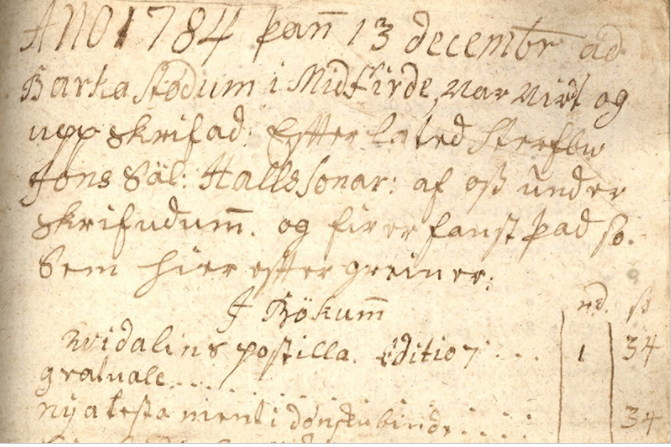 Ano 1784 þan̄ 13 decembr ad
Barkastødum i Midfirde, var virt og
uppskrifad: Effterlated sterfbu
Jons Sál: Hallssonar: af oss under
skrifudum̄. og firer fanst þad so.
Sem hier effter greiner:
J Bökum̄
rd. ß
Widalins postilla. Editio 7 . . . 1 34
gratuale . . .
nyatestamenti i dönsku binde . . . . 34